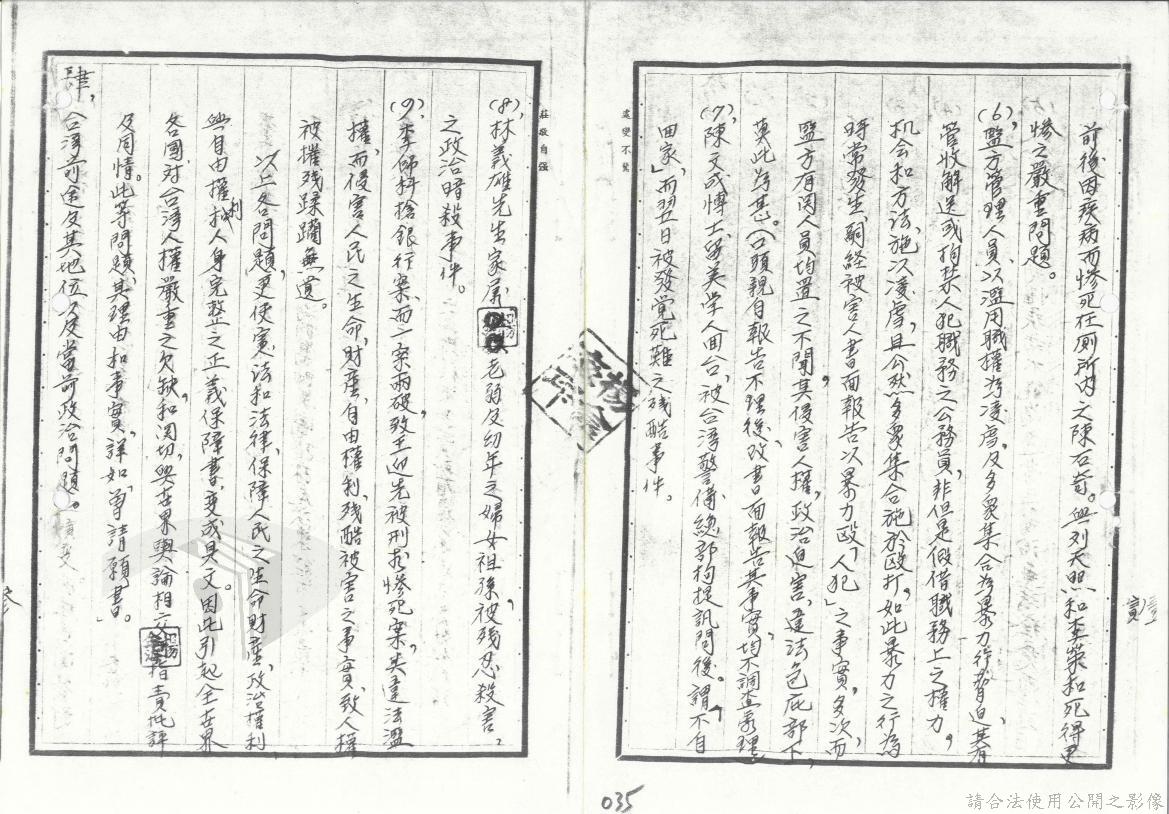 前後因疾病而慘死在厠所內之陳石
。與刘天照和李荣和死得更
慘之嚴重問題。
(6)、監方管理人員、以濫用職權為凌虐、及多眾集合為暴力行脅迫、甚者
管收解送或拘禁人犯職務之公務員，非但是假借職務上之權力，
机会和方法，施以凌虐，且公然多眾集合施於毆打，如此暴力之行為
時常發生，嗣經被害人書面報告以暴力毆「人犯」之事實，多次，而
監方有関人員均置之不聞，其侵害人權，政治迫害，違法包庇部下，
莫此為甚。（口頭親自報告不理後，改書面報告其事實，均不調查處理
(7)、陳文成博士、留美学人回台，被台湾警備總部拘提訊問後。謂「不自
回家」，而翌日被發覺死難之残酷事件。
莊敬自強
處變不驚
(8)、林義雄先生家屬
老弱及幼年之婦女祖孫，被残忍殺害，
之政治暗殺事件。
(9)、李師科搶銀行案，而一案兩破，致王迎先被刑求慘死案，其違法濫
權，而侵害人民之生命，財產，自由權利，残酷被害之事實，致人權
被摧残蹂躪無遺。
以上各問題，更使憲法和法律，保障人民之生命財產，政治權利
與自由權利
人身完整之正義保障書，变成具文。因此引起全世界
各國对台湾人權嚴重之欠缺，和関切，與世界輿論相
指責批評
及同情。此等問題，其理由和事實，詳如「曾請願書」。
肆，台湾前途及其地位以及當前政治問題。
035
請合法使用公開之影像